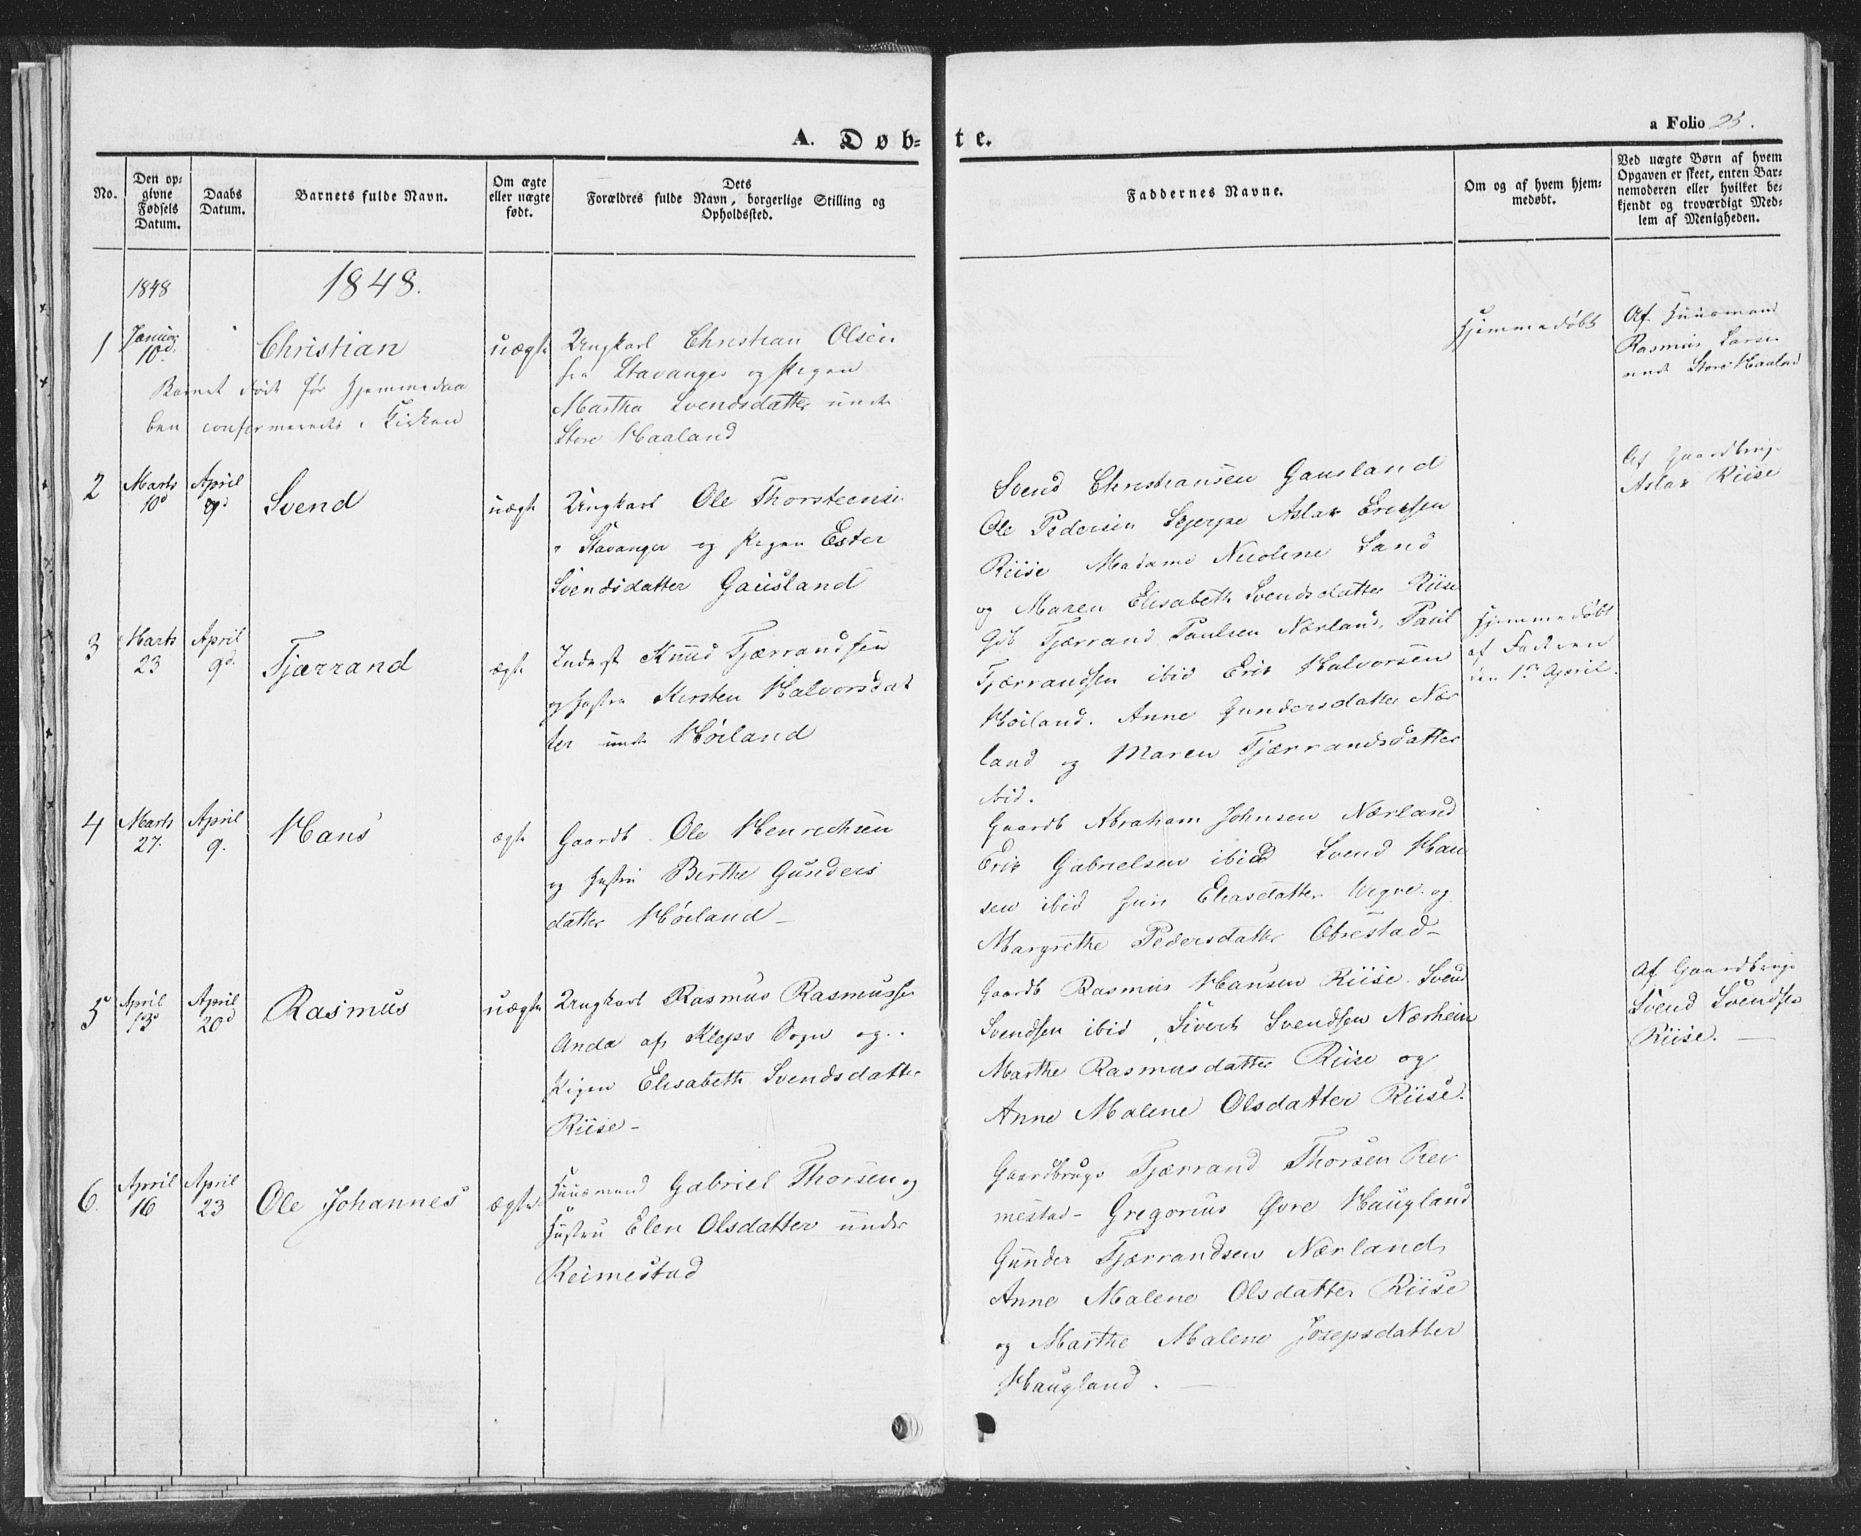 A. Døb-te.
a Folio 25.
No.
Den op-
givne
Fødsels
Datum.
Daabs
Datum.
Barnets fulde Navn.
Om ægte
eller uægte
født.
Dets
Forældres fulde Navn, borgerlige Stilling og
Opholdssted.
Faddernes Navne.
Om og af hvem hjem-
medøbt.
Ved uægte Børn af hvem
Opgaven er skeet, enten Bar-
nemoderen eller hvilket be-
kjendt og troværdigt Med-
lem af Menigheden.
1848
1848.
1
Januar
10d.
Christian
Barnet døde før Hjemmedaa
ben confirmeredes i Kirken
uægte
Ungkarl Christian Olsen
fra Stavanger og Pigen
Martha Svendsdatter under
Store Haaland
Hjemmedøbt
Af Huusmand
Rasmus Larsen
under Store Haaland
2
Marts
10d
April
9d
Svend
uægte
Ungkarl Ole Thorsteensen
i Stavanger og Pigen Ester
Svendsdatter Gausland
Svend Christiansen Gausland
Ole Pedersen Scherpe Aslak Ericksen
Riise Madame Nicoline Sand
og Maren Elisabeth Svendsdatter Riise
Af Gaardbruger
Aslak Riise
3
Marts
23
April
9d.
Tjærrand
ægte
Inderst Knud Tjærrandsen
og Hustru Kirsten Halvorsdat
ter under Høiland
Gdb Tjærrand Paulsen Nærland, Paul
Tjærrandsen ibid Erik Halvorsen
Høiland. Anne Gundersdatter Nær
land og Maren Tjærrandsdatter
ibid.
Hjemmedøbt
af Faderen
den 1ste April.
4
Marts
27.
April
9.
Hans
ægte
Gaardb. Ole Henrichsen
og Hustru Berthe Gunders
datter Høiland
Gaardb Abraham Johnsen Nærland
Erik Gabrielsen ibid Svend Han
sen ibid Guri Eliasdatter Vigre og
Margrethe Pedersdatter Obrestad
5
April
13d
April
20d
Rasmus
uægte
Ungkarl Rasmus Rasmussen
Anda af Klepps Sogn og
Pigen Elisabeth Svendsdatter
Riise
Gaardb Rasmus Hansen Riise. Svend
Svendsen ibid, Sivert Svendsen Nærheim
Marthe Rasmusdatter Riise og
Anne Malene Olsdatter Riise.
Af Gaardbruger
Svend Svendsen
Riise.
6.
April
16
April
23
Ole Johannes
ægte
Huusmand Gabriel Thorsen og
Hustru Elen Olsdatter under
Reimestad
Gaardbruger Tjærrand Thorsen Rei
mestad - Gregorius Øvre Haugland
Gunder Tjærrandsen Nærland,
Anne Malene Olsdatter Riise
og Marthe Malene Josepsdatter
Haugland.